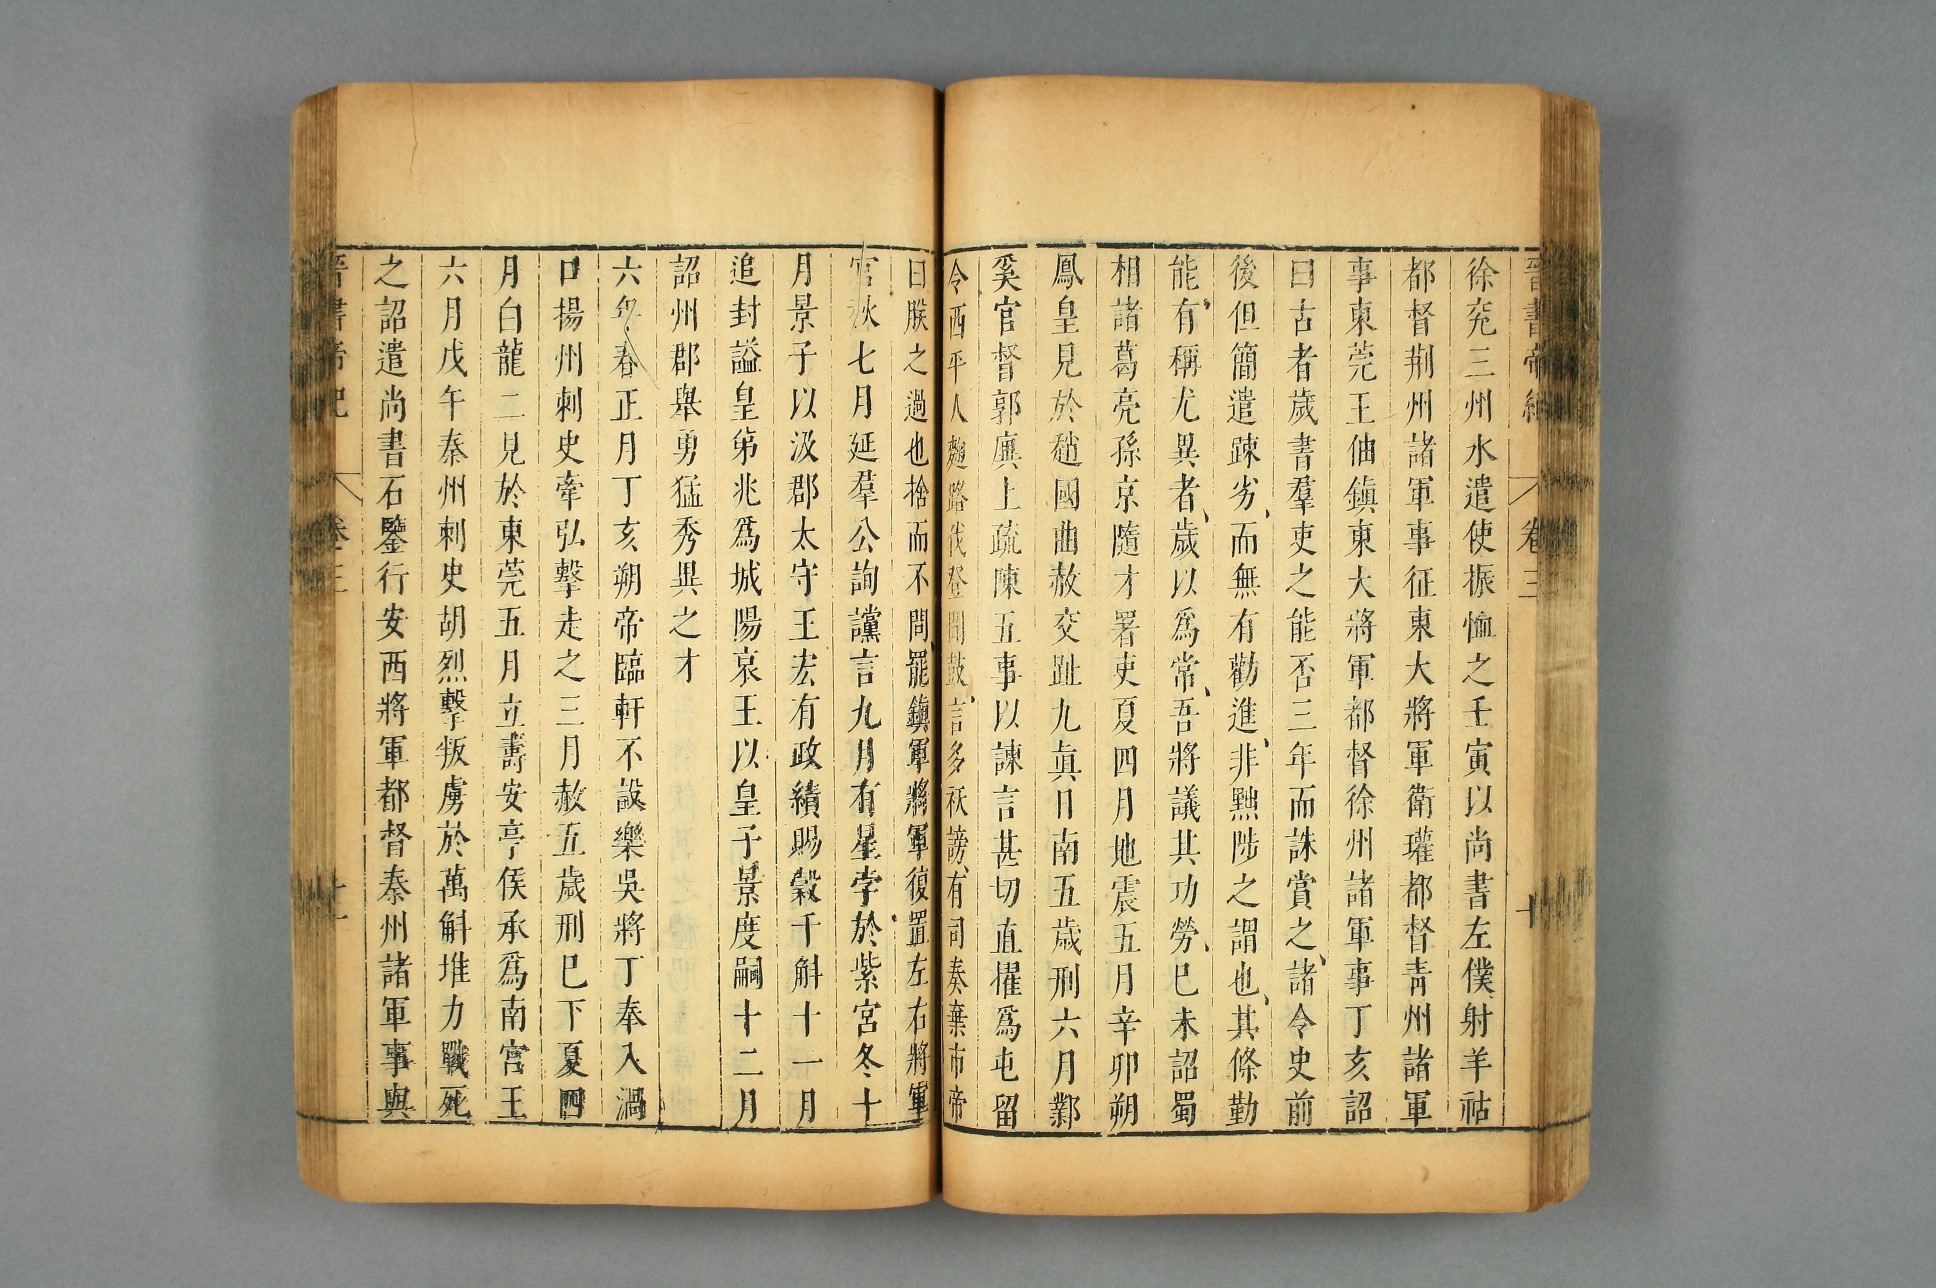 晉書帝紀 卷三 十
徐兗三州水遣使振恤之壬寅以尚書左僕射羊祜
都督荆州諸軍事征東大將軍衛瓘都督青州諸軍
事東莞王伷鎮東大將軍都督徐州諸軍事丁亥詔
曰古者歲書羣吏之能否三年而誅賞之諸令史前
後但簡遣踈劣而無有勸進非黜陟之謂也其條勤
能有稱尤異者歲以爲常吾將議其功勞巳未詔蜀
相諸葛亮孫京隨才署吏夏四月地震五月辛卯朔
鳳皇見於趙國曲赦交趾九眞日南五歲刑六月鄴
奚官督郭廙上疏陳五事以諫言甚切直擢爲屯留
令西平人麴路伐登聞鼓言多祅謗有司奏棄市帝
曰朕之過也捨而不問罷鎮軍將軍復置左右將軍
官秋七月延羣公詢讜言九月有星孛於紫宮冬十
月景子以汲郡太守王宏有政績賜穀千斛十一月
追封謚皇弟兆爲城陽哀王以皇子景度嗣十二月
詔州郡舉勇猛秀異之才
六年春正月丁亥朔帝臨軒不設樂吳將丁奉入渦
口揚州刺史牽弘擊走之三月赦五歲刑巳下夏四
月白龍二見於東莞五月立壽安亭侯承爲南宮王
六月戊午秦州刺史胡烈擊叛虜於萬斛堆力戰死
之詔遣尚書石鑒行安西將軍都督秦州諸軍事與
晉書帝紀 卷三 十一